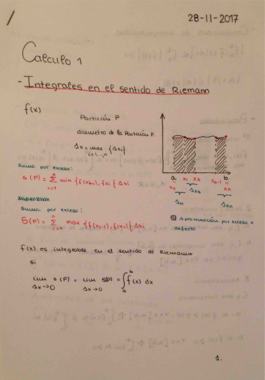 28-11-2017
Calculo 1
- Integrales en el sentido de Riemann
f(x)
Partición P
diametro de la Partición P.
Δx = max {Δxi}
Suma por exceso:
s(P) = Σ min {f(xi-1), f(xi)} Δxi
Suma por exceso:
S(P) = Σ max {f(xi-1), f(xi)} Δxi
a
b
Aproximación por exceso o
defecto
f(x) es integrable en el sentido de Riemann
si
lim s(P) = lim S(P) = ∫ f(x) dx
Δx→0 Δx→0
1.